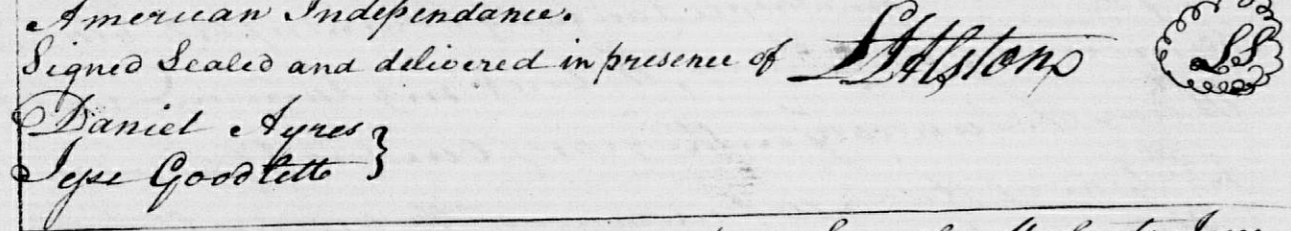 American Independance.
Signed Sealed and delivered in presence of LL Alston LS
Daniel Ayres
Jesse Goodlett